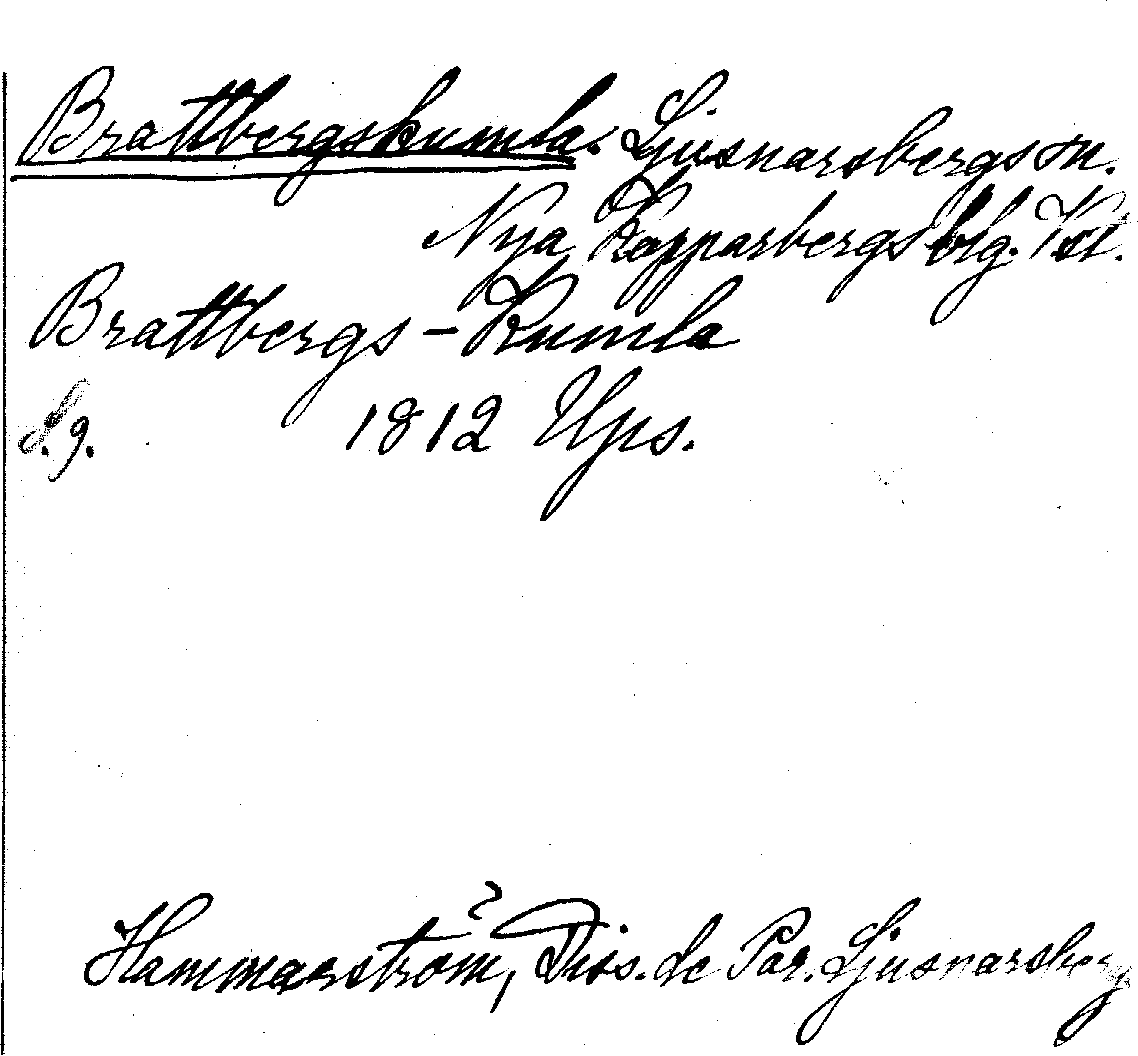 Brattbergskumla. Ljusnarsbergs sn.
Nya Kopparbergs blg. Vst.
Brattbergs-Kumla
S. g. 1812 Ups.
Hammarström, Diss. de Par. Ljusnarsberg